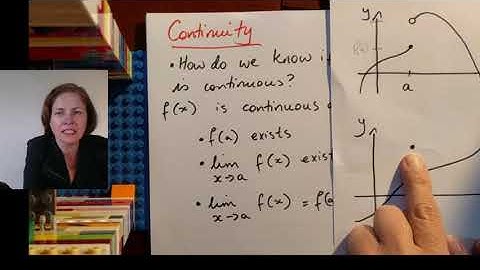 Continuity
• How do we know i
is continuous?
f(x) is continuous
• f(a) exists
• lim f(x) exist
x→a
• lim f(x) = f(a
x→a
y
f(a)
a
y